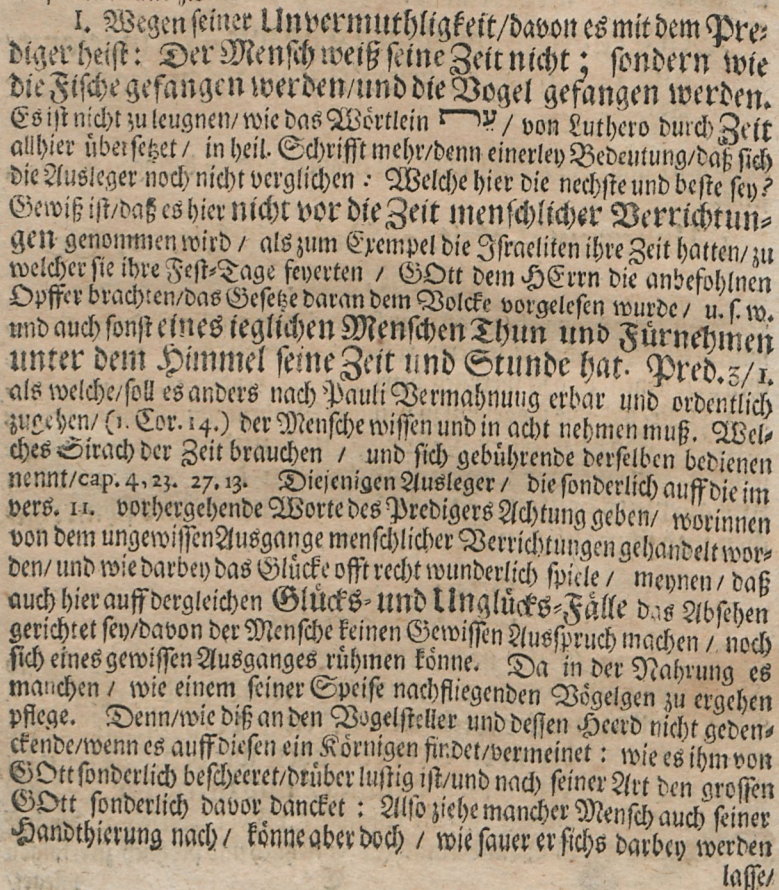 1. Wegen seiner Unvermuthligkeit/davon es mit dem Pre-
diger heist: Der Mensch weiß seine Zeit nicht; sondern wie
die Fische gefangen werden/und die Vogel gefangen werden.
Es ist nicht zu leugnen/ wie das Wörtlein / von Luthero durch Zeit
allhier übersetzet / in heil. Schrifft mehr/denn einerley Bedeutung/daß sich
die Ausleger noch nicht verglichen: Welche hier die nechste und beste sey?
Gewiß ist/daß es hier nicht vor die Zeit menschlicher Verrichtun-
gen genommen wird / als zum Exempel die Israeliten ihre Zeit hatten/ zu
welcher sie ihre Fest-Tage feyerten / GOtt dem HErrn die anbefohlnen
Opffer brachten/das Gesetze daran dem Volcke vorgelesen wurde/ u. s. w.
und auch sonst eines ieglichen Menschen Thun und Fürnehmen
unter dem Himmel seine Zeit und Stunde hat. Pred. 3/1.
als welche/soll es anders nach Pauli Vermahnung erbar und ordentlich
zugehen/ (1. Cor. 14.) der Mensche wissen und in acht nehmen muß. Wel-
ches Sirach der Zeit brauchen / und sich gebührende derselben bedienen
nennt/cap. 4, 23. 27, 13. Diejenigen Ausleger / die sonderlich auff die im
vers. 11. vorhergehende Worte des Predigers Achtung geben/ worinnen
von dem ungewissen Ausgange menschlicher Verrichtungen gehandelt wor-
den/ und wie darbey das Glücke offt recht wunderlich spiele / meynen / daß
auch hier auff dergleichen Glücks- und Unglücks-Fälle das Absehen
gerichtet sey/davon der Mensche keinen Gewissen Ausspruch machen / noch
sich eines gewissen Ausganges rühmen könne. Da in der Nahrung es
manchen / wie einem seiner Speise nachfliegenden Vögelgen zu ergehen
pflege. Denn/wie diß an den Vogelsteller und dessen Heerd nicht geden-
ckende/wenn es auff diesen ein Körnigen findet/vermeinet: wie es ihm von
GOtt sonderlich bescheeret/drüber lustig ist/und nach seiner Art den grossen
GOtt sonderlich davor dancket: Also ziehe mancher Mensch auch seiner
Handthierung nach / könne aber doch / wie sauer er sichs darbey werden
lasse/